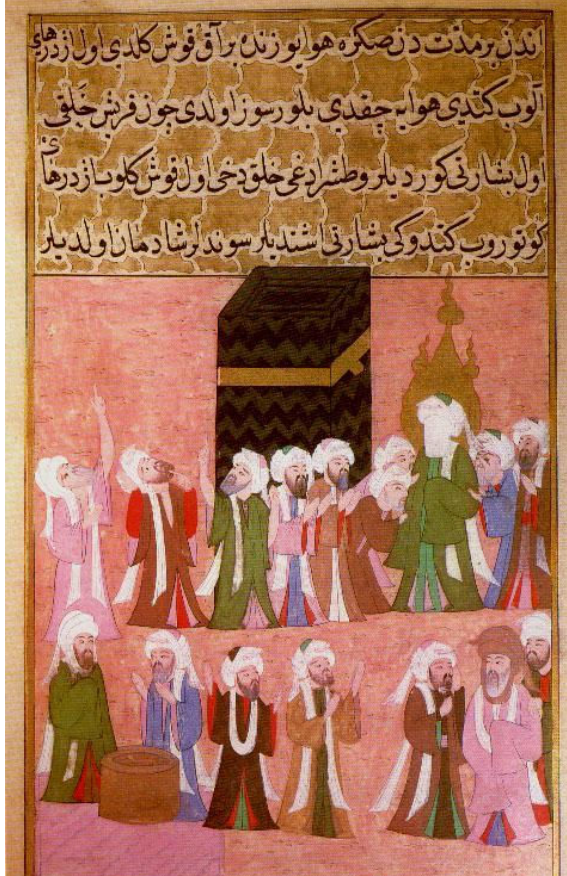 اندن بر مدّت دن صکره هوا یوزنده بر آق قوش کلدی اول ازدرهای
آلوب کندی هوایه چقدی بلورسوز اولدی چون قریش خلقی
اول بشارتی کوردیلر وطشرادغی خلق دخی اول قوش کلوب ازدرهای
کوتوروب کندوکی بشارتی اشتدیلر سوندلر شادمان اولدیلر